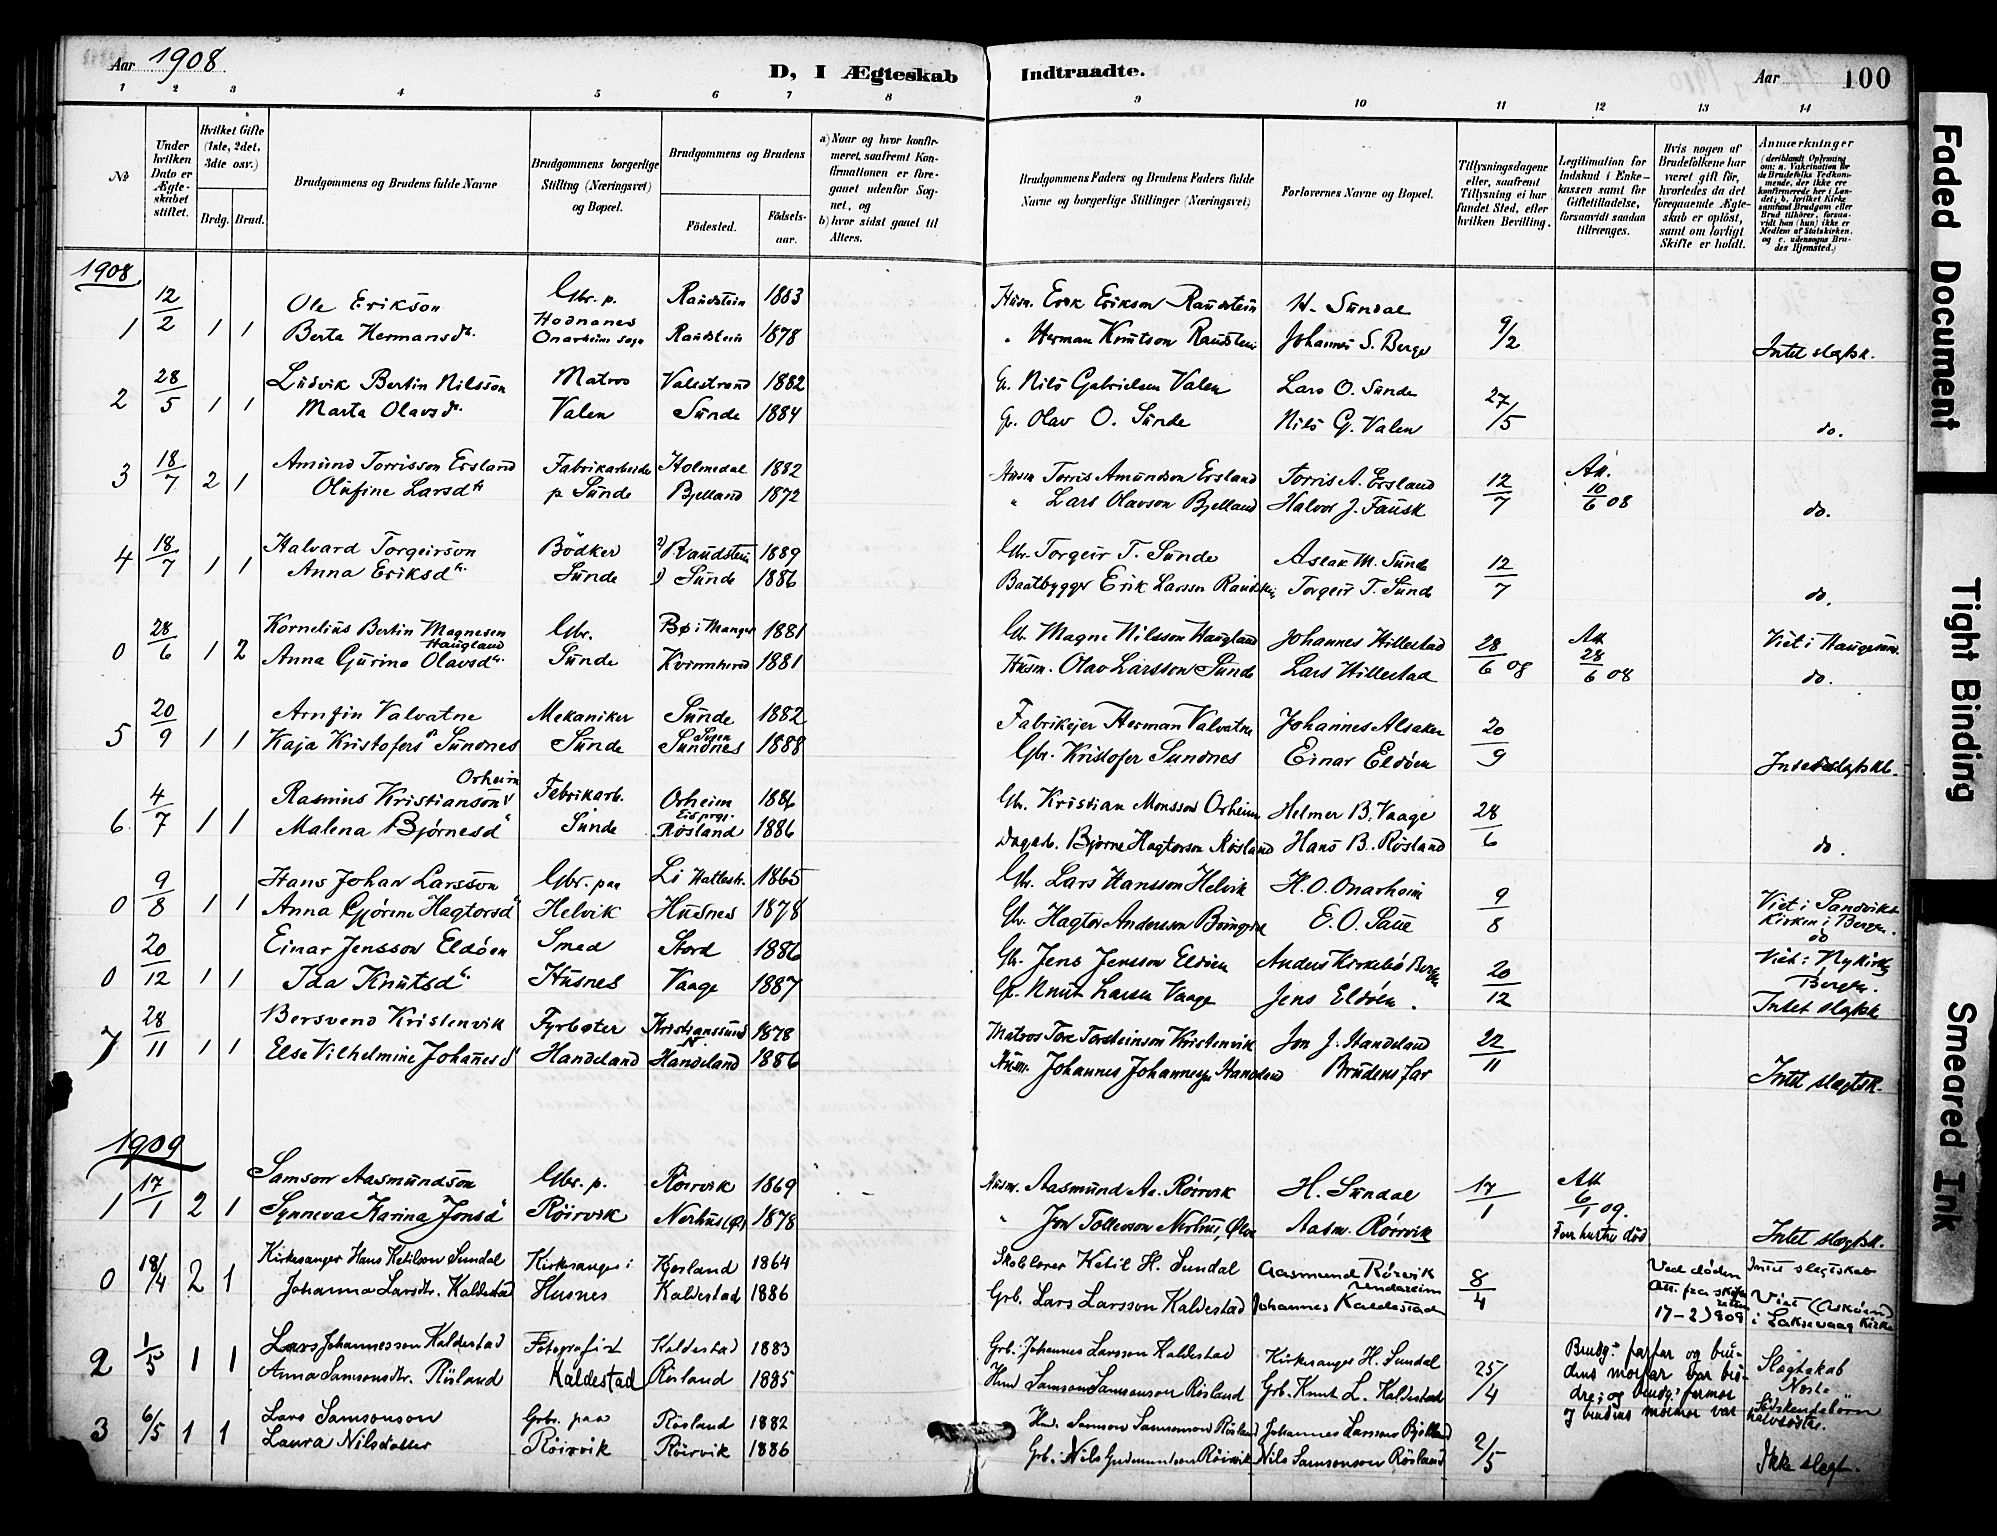 Aar 1908.
D, I Ægteskab Indtraadte.
Aar 100
1 2 3 4 5 6 7 8 9 10 11 12 13 14
No
Under hvilken Dato er Ægteskabet stiftet.
Hvilket Gifte (1ste, 2det, 3die osv.)
Brdg. Brud.
Brudgommens og Brudens fulde Navne
Brudgommens borgerlige Stilling (Næringsvei) og Bopæl.
Brudgommens og Brudens
Födested.
Födsels-aar.
a) Naar og hvor konfirmeret, saafremt Konfirmationen er foregaaet udenfor Sognet, og
b) hvor sidst gaaet til Alters.
Brudgommens Faders og Brudens Faders fulde Navne og borgerlige Stillinger (Næringsvei)
Forlovernes Navne og Bopæl.
Tillysningsdagene eller, saafremt Tillysning ei har fundet Sted, efter hvilken Bevilling.
Legitimation for Indskud i Enkekassen samt for Giftetilladelse, forsaavidt saadan tiltrænges.
Hvis nogen af Brudefolkene har været gift för, hvorledes da det foregaaende Ægteskab er oplöst, samt om lovligt Skifte er holdt.
Anmærkninger
(deriblandt Oplysning om: a. Vakcination for de Brudefolks Vedkommende, der ikke ere konfirmerede her i Landet; b. hvilket Kirkesamfund Brudgom eller Brud tilhörer, forsaavidt han (hun) ikke er Medlem af Statskirken, og c. udensogns Brudes Hjemsted.)
1908
12/2 Ole Erikson Gbr. p. Raudstein 1883 Husm. Erik Erikson Raudstein H. Sundal
1 1 1 Berta Hermansdr. Hodnanes Onarheim sogn Raudstein 1878 " Herman Knutson Raudstein Johannes S. Berge 9/2 Intet slegtsk.
28/5 Ludvik Bertin Nilsson Matros Valestrand 1882 G. Nils Gabrielsen Valen Lars O. Sunde
2 1 1 Marta Olavsdr. Valen Sunde 1884 G. Olav O. Sunde Nils G. Valen 27/5 do.
18/7 Amund Torrisson Ersland Fabrikarbeider Holmedal 1882 Husm Torris Amundson Ersland Torris A. Ersland 12/7 Att.
3 2 1 Olufine Larsdtr p Sunde Bjelland 1872 " Lars Olavson Bjelland Halvor J. Fausk 10/6 08 do.
18/7 Halvard Torgeirson Bödker 2) Raudstein 1889 Gbr. Torgeir T. Sunde Aslak M. Sunde 12/7
4 1 1 Anna Eriksdtr. Sunde 1) Sunde 1886 Baatbygger Erik Larsson Raudstein Torgeir T. Sunde do.
28/6 Kornelius Bertin Magnesen Haugland Gbr. Bø i Manger 1881 G. Magne Nilsson Haugland Johannes Hillestad 28/6 08 Att Viet i Haugesund.
0 1 2 Anna Gurina Olavsdtr. Sunde Kvinnherad 1881 Husm. Olav Larsson Sunde Lars Hillestad 28/6 08 do.
20/9 Arnfin Valvatne Mekaniker Sunde 1882 Fabrikejer Herman Valvatne Johannes Alsaker 20/9
5 1 1 Kaja Kristofersd Sundnes Sunde Sundnes 1888 Gbr. Kristofer Sundnes Einar Eldöen Intet slegtsk.
4/7 Rasmus Kristianson Orheim Fabrikarb. Orheim 1886 Gb. Kristian Monsson Orheim Helmer B. Vaage 28/6
6 1 1 Malena Bjørnesd Sunde Eid prgj. Røsland 1886 Dagarb. Bjørne Hagtorson Røsland Hans B. Røsland do.
9/8 Hans Johan Larsson Gbr. paa Li Hattestr. 1865 Gb. Lars Hansson Helvik H. O. Onarheim 9/8 Viet i Sandviks-Kirken i Bergen.
0 1 1 Anna Gjørine Hagtorsd Helvik Husnes 1878 Gb. Hagtor Anderson E. O. Saue do
20/12 Einar Jensson Eldöen Smed Stord 1886 Gb. Jens Jensson Eldöen Anders Kirkebö Bergen 20/12 Viet i Nykirken Bergen.
0 1 1 Ida Knutsd. Husnes Vaage 1887 G. Knut Larsen Vaage Jens Eldöen. Intet slegtsk
28/11 Bersvend Kristenvik Fyrböter Kristianssund N 1878 Matros Tore Torsteinson Kristenvik Jon J. Handeland 22/11
7 1 1 Else Vilhelmine Johannesd Handeland Handeland 1886 Husm. Johannes Johannesen Handeland Brudens far Intet slegtsk.
1909
17/1 Samson Aasmundson Gbr. p. Röirvik 1869 Husm. Aasmund Aa. Röirvik H. Sundal 17/1 Att 6/1 09.
1 2 1 Synneva Karina Jonsd Röirvik Nerhus (Ø) 1878 " Jon Tollesson Nerhus, Ølen Aasm. Röirvik Forr hustru död Intet slegtsk.
18/4 Kirkesanger Hans Ketilson Sundal Kirkesanger i 1864 Skolelærer Ketil H. Sundal Aasmund Rörvik Undarheim 8/4 Ved döden Att. fra skifteretten 17-2-1909 Intet slegtskab
0 2 1 Johanna Larsdtr. Kaldestad Husnes Kaldestad 1886 Grb. Lars Larsson Kaldestad Johannes Kaldestad Viet (Askøen) i Laksevaag Kirke
1/5 Lars Johannesson Kaldestad Fotografist Kaldestad 1883 Grb. Johannes Larsson Kaldestad Kirkesanger H. Sundal 25/4 Brudg.s farfar og brudens morfar var brödre; og brudg.s farmor og brudens mormor var halvsöstre. Slegtskab Næst Södskendebörn
2 1 1 Anna Samsonsdtr. Røsland Kaldestad Røsland 1885 Husm Samson Samsonson Røsland Grb. Knut L. Kaldestad
6/5 Lars Samsonson Grbr. paa Røsland 1882 Husm. Samson Samsonson Røsland Johannes Larsson Bjelland 2/5
3 1 1 Laura Nilsdatter Röirvik Röirvik 1886 Grb. Nils Gudmundson Röirvik Nils Samsonson Rösland Ikke slegt.
Faded Document
Tight Binding
Smeared Ink